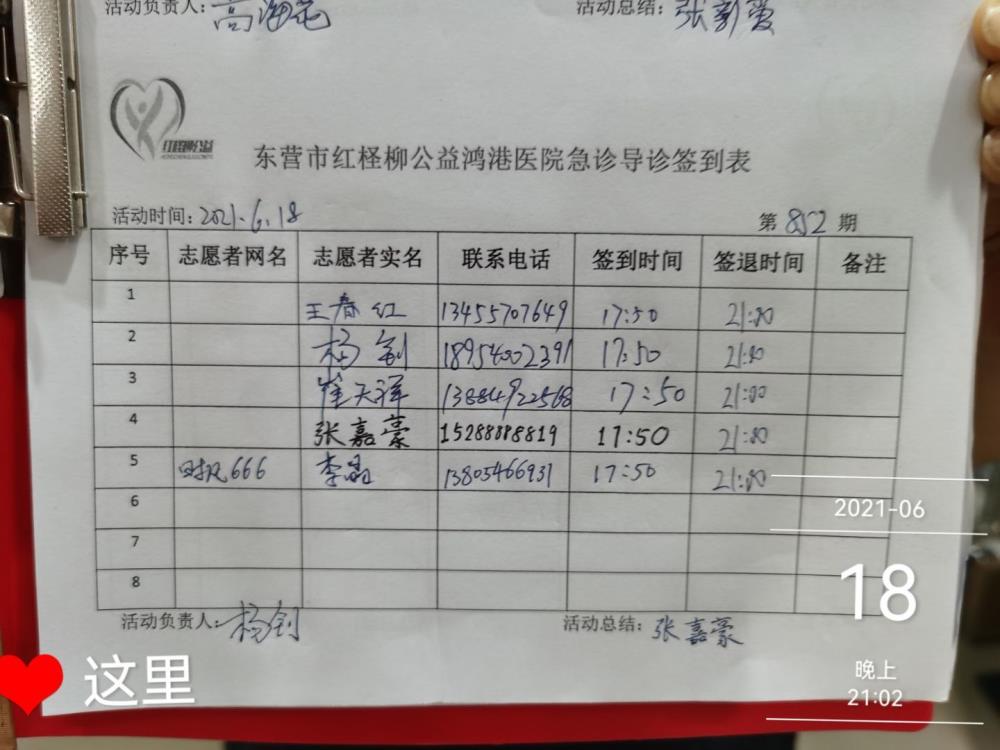 活动负责人：高海花 活动总结：张新爱
红柽柳公益
东营市红柽柳公益鸿港医院急诊导诊签到表
活动时间：2021.6.18 第852期
序号 志愿者网名 志愿者实名 联系电话 签到时间 签退时间 备注
1 王春红 13455707649 17:50 21:00
2 杨钊 18954002391 17:50 21:00
3 崔天祥 13884922568 17:50 21:00
4 张嘉豪 15288888819 17:50 21:00
5 时风666 李晶 13805466931 17:50 21:00
6
7
8
活动负责人：杨钊 活动总结：张嘉豪
2021-06
18
晚上
21:02
这里